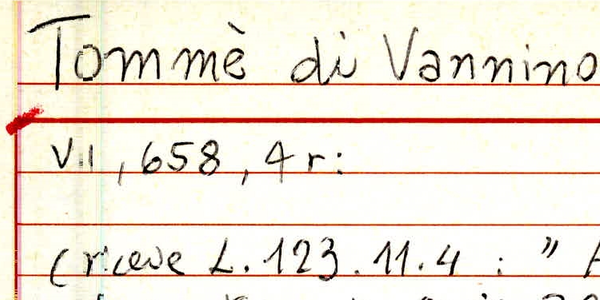 Tommè di Vannino
VII, 658, 4r:
(riceve L. 123.11.4 : "